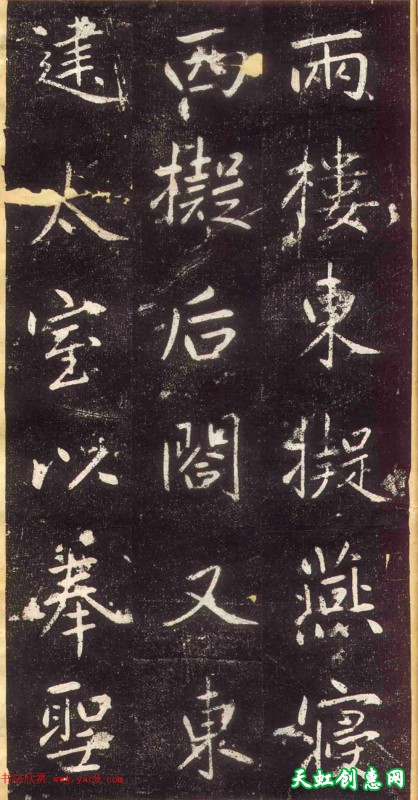 兩樓東擬燕寢
西擬后閤又東
建太室以奉聖
书法欣赏 www.yac8.com
天虹创惠网